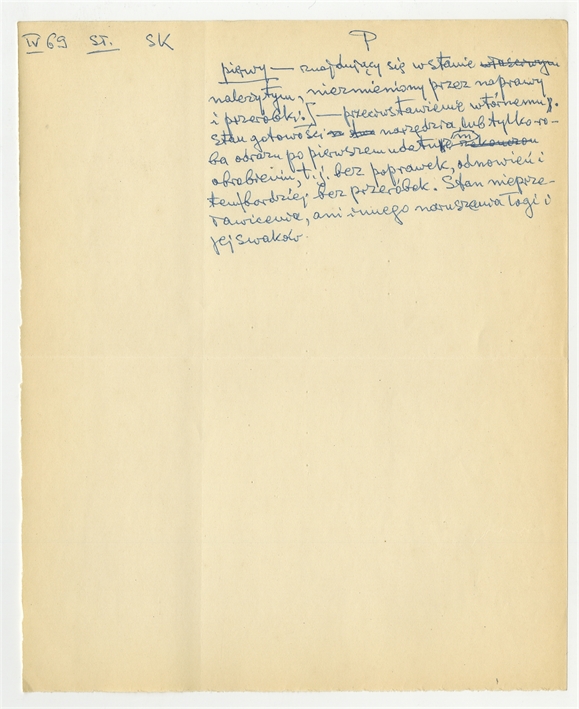 IV 69 ST. SK P
pierwy — znajdujący się w stanie właściwym
należytym, niezmieniony przez naprawy
i przeróbki. — przeciwstawienie wtórnemu.
Stan gotowości narzędzia lub tylko wy-
ba odrazu po pierwszem udatnem
obrobieniu, t.j. bez poprawek, odnowień i
tembardziej bez przeróbek. Stan nieprze-
ani innego naruszenia Togi i
jej swaków.